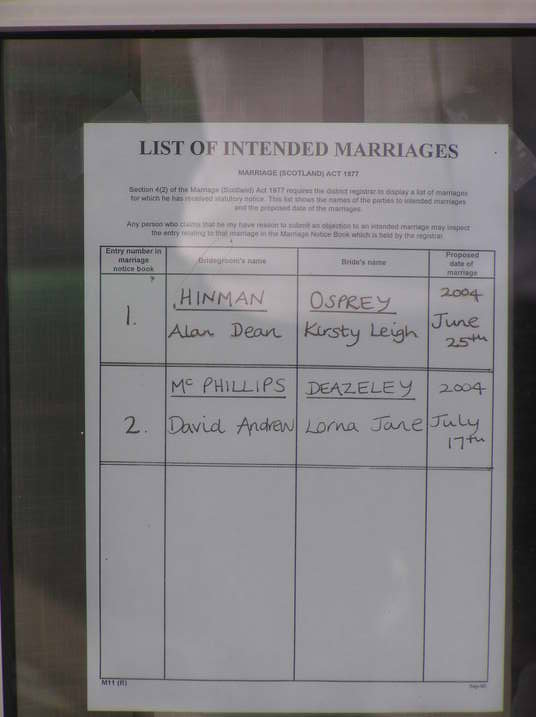 LIST OF INTENDED MARRIAGES
MARRIAGE (SCOTLAND) ACT 1977
Section 4(2) of the Marriage (Scotland) Act 1977 requires the district registrar to display a list of marriages
for which he has received statutory notice. This list shows the names of the parties to intended marriages
and the proposed date of the marriages.
Any person who claims that he may have reason to submit an objection to an intended marriage may inspect
the entry relating to that marriage in the Marriage Notice Book which is held by the registrar.
Entry number in
marriage
notice book
Bridegroom's name
Bride's name
Proposed
date of
marriage
1.
HINMAN
Alan Dean
OSPREY
Kirsty Leigh
2004
June
25th
2.
Mc PHILLIPS
David Andrew
DEAZELEY
Lorna Jane
2004
July
17th
M11 (R)